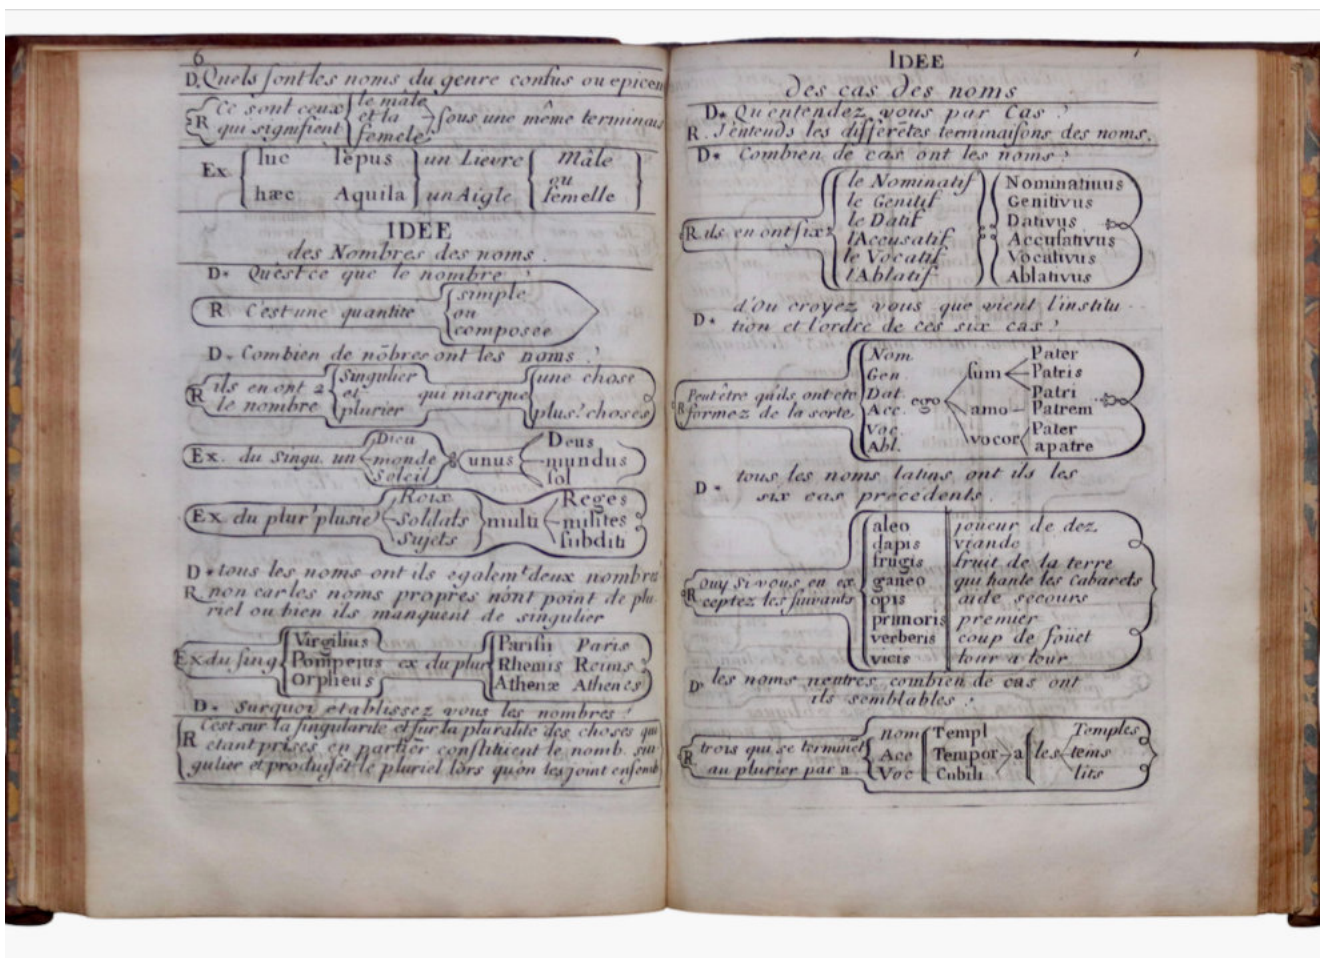 6
D. Quels sont les noms du genre confus ou epicen
R Ce sont ceux qui signifient { le mâle et la femele } sous une même terminais
Ex. { huc lepus } un Lievre { Mâle
ou
hæc Aquila } un Aigle { femelle
IDEE
des Nombres des noms.
D. Qu'est ce que le nombre ?
R C'est une quantité { simple ou composée
D. Combien de nōbres ont les noms ?
R ils en ont 2 le nombre { Singulier et plurier } qui marque { une chose plus.s choses
Ex. du Singu. un { Dieu monde Soleil } unus { Deus mundus sol
Ex. du plur' plusie' { Roix Soldats Sujets } multi { Reges milites subditi
D. tous les noms ont ils egalem.t deux nombre
R non car les noms propres n'ont point de plu
riel ou bien ils manquent de singulier
Ex du sing { Virgilius Pompeius Orpheus } ex du plur { Parisii Paris
Rhemis Reims
Athenæ Athenes
D. Surquoi etablissez vous les nombres ?
R C'est sur la singularité et sur la pluralité des choses qui
etant prises en partier constituent le nomb. sin
gulier et produisēt le pluriel lors qu'on les joint ensemb
IDEE
des cas des noms
D. Qu'entendez vous par Cas ?
R. J'entends les differētes terminaisons des noms.
D. Combien de cas ont les noms ?
R. ils en ont six
le Nominatif Nominatiuus
le Genitif Genitivus
le Datif Dativus
l'Accusatif Accusativus
le Vocatif Vocativus
l'Ablatif Ablativus
D. d'Ou croyez vous que vient l'institu
tion et l'ordre de ces six cas ?
R Peut être qu'ils ont ete formez de la sorte
Nom. Gen. Dat. Acc. Voc. Abl.
ego
sum Pater Patris
amo Patri Patrem
vocor Pater apatre
D. tous les noms latins ont ils les
six cas precedents.
R Ouy si vous en ex
ceptez les suivants
aleo joueur de dez
dapis viande
frugis fruit de la terre
ganeo qui hante les cabarets
opis aide secours
primoris premier
verberis coup de foüet
vicis tour a tour
D. les noms neutres combien de cas ont
ils semblables ?
R. trois qui se terminēt
au plurier par a
nom Templ Temples
Acc Tempor a les tems
Voc Cubili lits